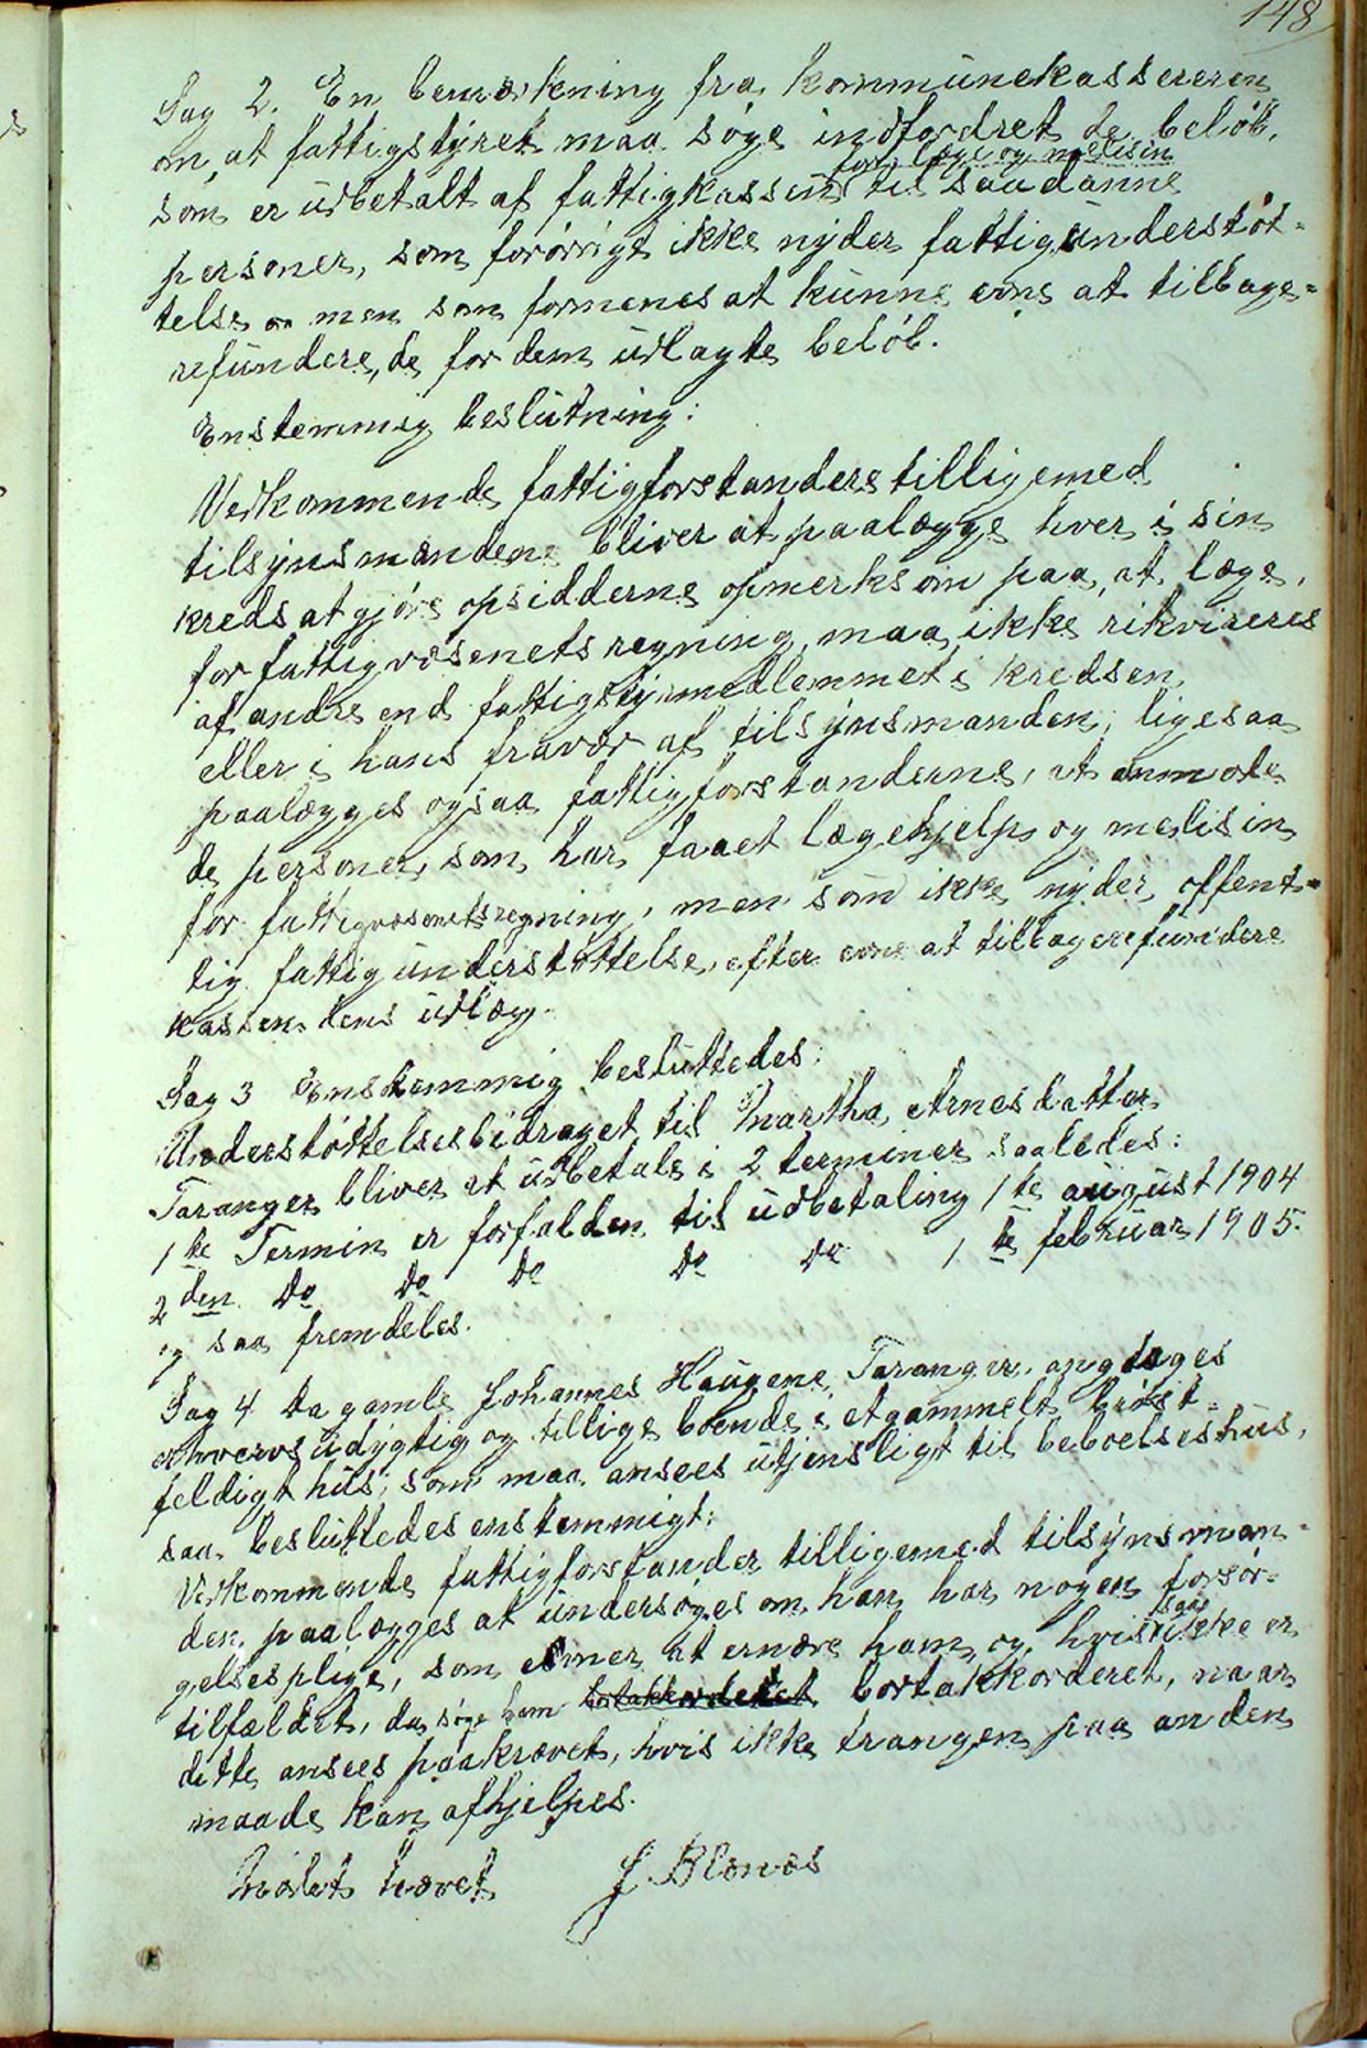 148
Sag 2. En bemærkning fra kommunekassereren
om, at fattigstyret maa søge indfordret de beløb,
for læge og medisin
som er udbetalt af fattigkassen til saadanne
personer, som forøvrigt ikke nyder fattigunderstøt-
telse men som formenes at kunne evne at tilbage-
refundere, de for dem udlagte beløb.
Enstemmig beslutning:
Vedkommende fattigforstandere tilligemed
tilsynsmændene bliver at paalægge hver i sin
kreds at gjøre opsidderne opmerksom paa, at læge,
for fattigvæsenets regning, maa ikke rikvireres
af andre end fattigstyrmedlemmet i kredsen
eller i hans fravær af tilsynsmanden; ligesaa
paalægges ogsaa fattigforstanderne, at anmode
de personer, som har faaet lægehjelp og medisin
for fattigvæsenets regning, men som ikke nyder offent-
lig fattigunderstøttelse, efter evne at tilbagerefundere
kassen dens udlæg.
Sag 3 Enstemmig besluttedes:
Understøttelsesbidraget til Martha Arnesdatter
Taranger bliver at udbetale i 2 terminer saaledes:
1ste Termin er forfalden til udbetaling 1ste august 1904
2den Do Do Do Do Do 1ste februar 1905.
og saa fremdeles.
Sag 4. Da gamle Johannes Haugene Taranger, angives
erhvervsudygtig og tillige boende i et gammelt brøst-
feldigt hus, som maa ansees utjensligt til beboelseshus,
saa besluttedes enstemmigt:
Vedkommende fattigforstander tilligemed tilsynsman-
den, paalægges at undersøges om han har nogen forsør-
gelsespligt, som evner at ernære ham, og, hvis saa ikke er
tilfældet, da søge ham bortakkorderet bortakkorderet, naar
dette ansees paakrævet, hvis ikke trangen paa anden
maade kan afhjelpes.
Mødet hævet J. Blænes